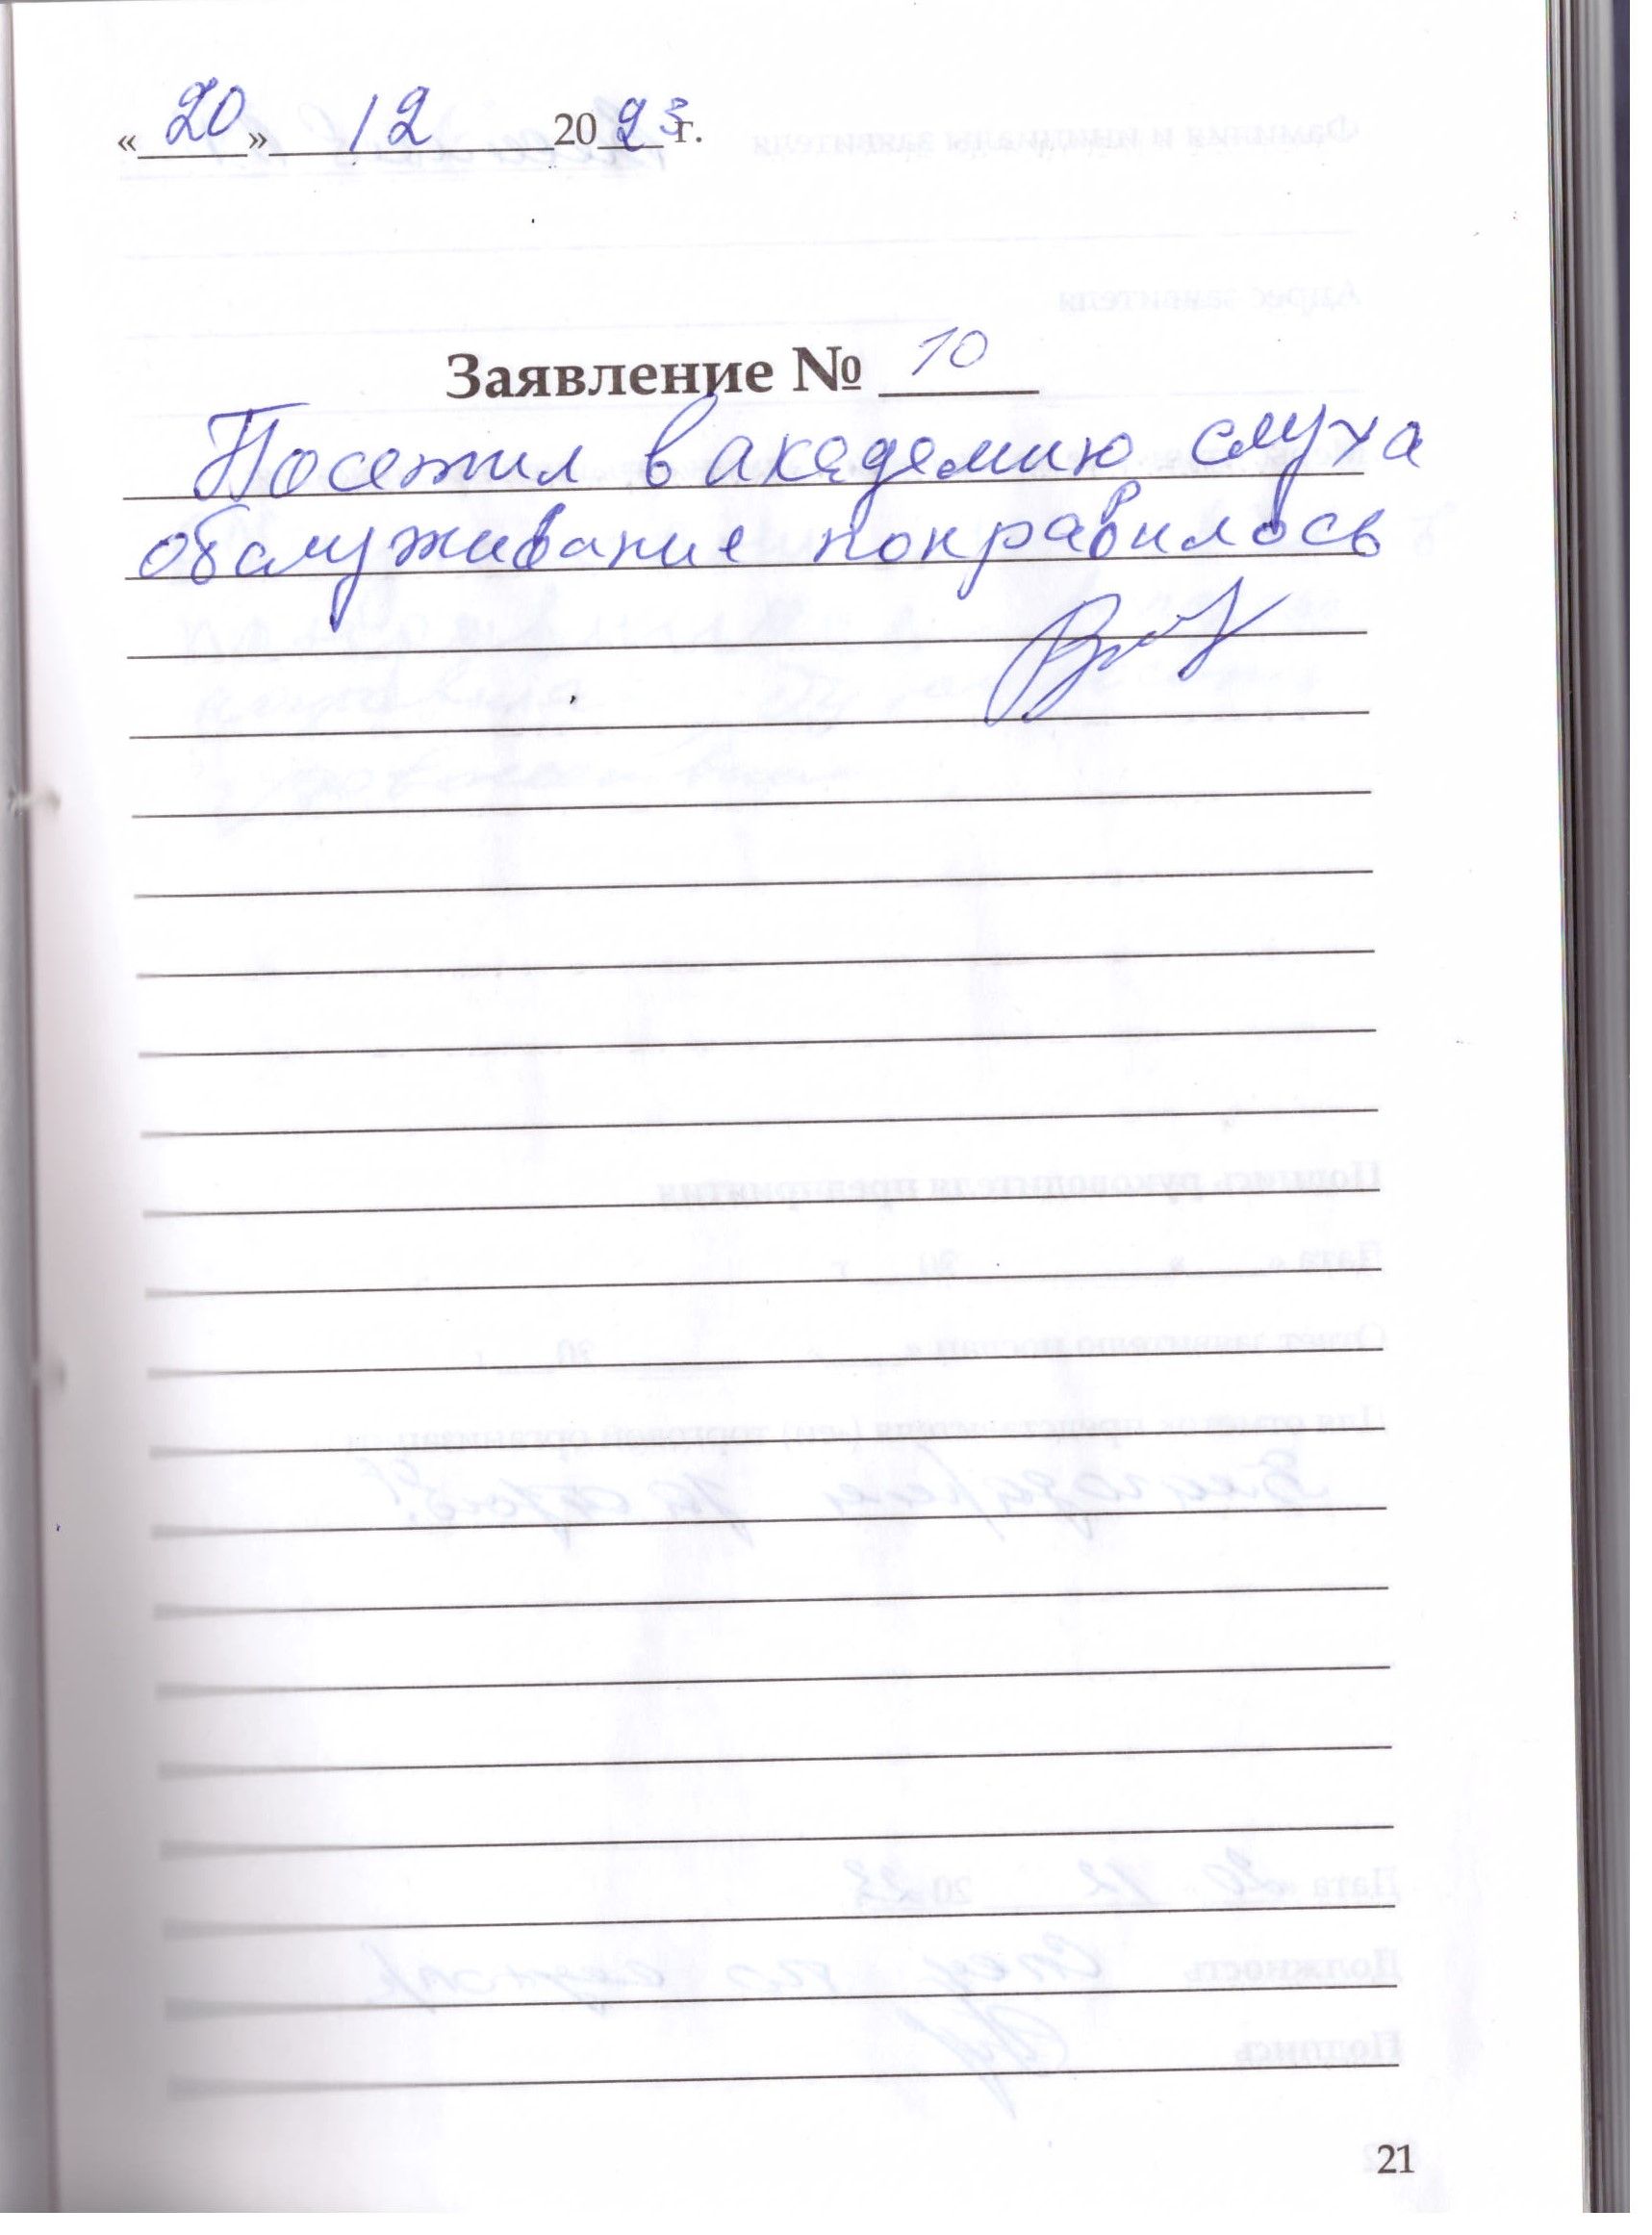 «20» 12 2023г.
Заявление № 10
Посетил в академию слуха
обслуживание понравилось
21